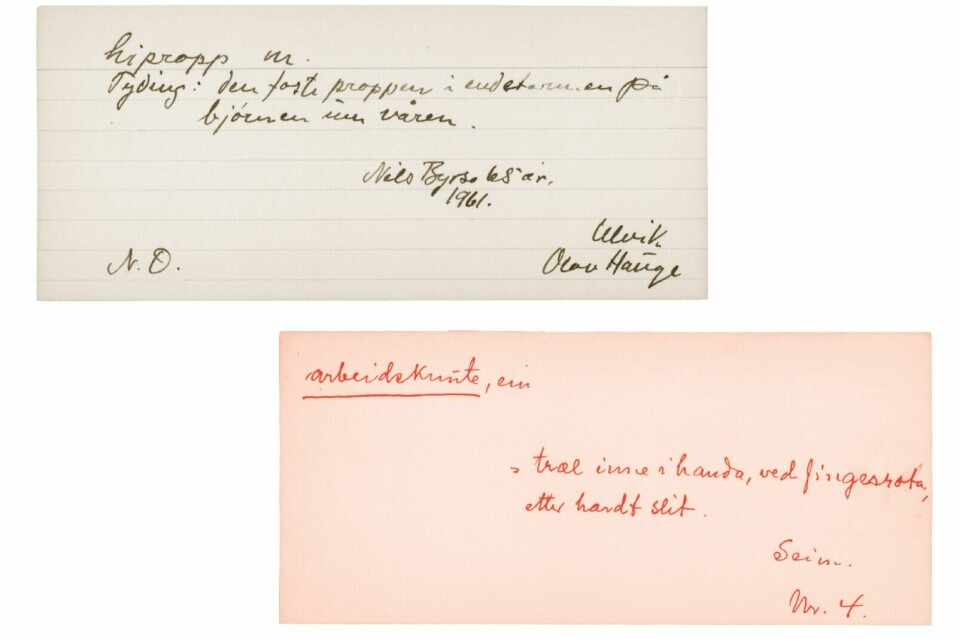 hipropp m.
Tyding: den faste proppen i endetarmen på
bjørnen um våren.
Nils Byrsø 68 år.
1961.
Ulvik
N. O.
Olav Hauge
arbeidskunte, ein
= træl inne i handa, ved fingerrota,
etter hardt slit.
Seim.
Nr. 4.